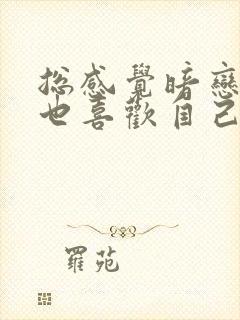 總感覺暗戀
也喜歡自己
羅苑